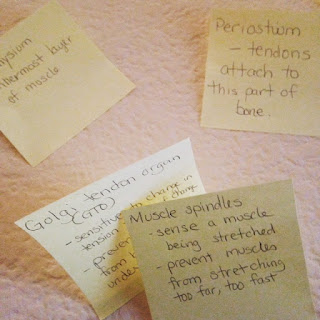 ysium
nnermost layer
of muscle
Periostium
- tendons
attach to
this part of
bone.
Golgi tendon organ
(GTO)
- sensitive to change in
tension
change
- preven
from
unde
Muscle spindles
- sense a muscle
being stretched
- prevent muscles
from stretching
too far, too fast